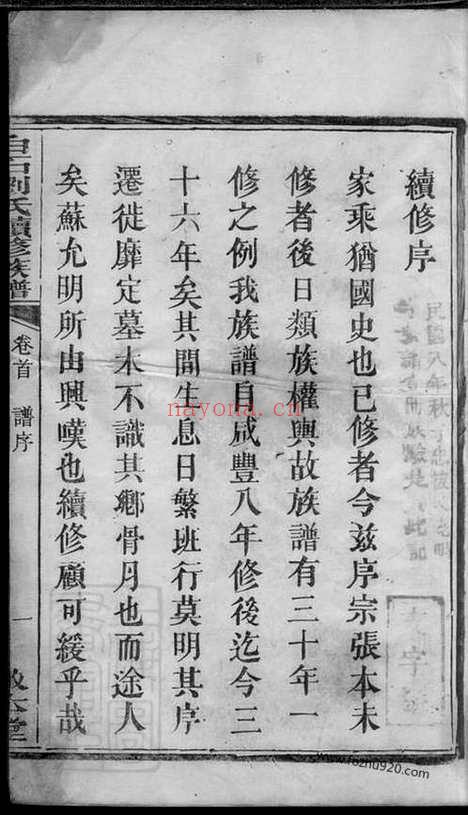 續修序
家乘猶國史也已修者今兹序宗張本未
修者後日類族權輿故族譜有三十年一
修之例我族譜自咸豐八年修後迄今三
十六年矣其間生息日繁班行莫明其序
遷徙靡定墓木不識其鄉骨月也而途人
矣蘇允明所由興嘆也續修顧可緩乎哉
白石劉氏續修族譜
卷首 譜序
一
民國八年秋
字
nayona.cn
www.fozhu920.com